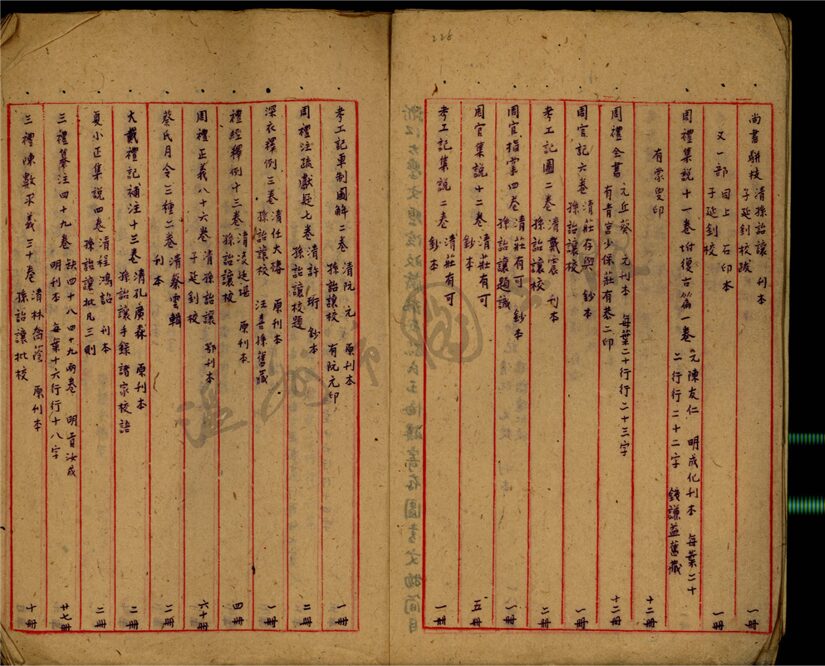 尚書駢枝 清孫詒讓 刊本 子延釗校跋 一冊
又一部 目上 石印本 子延釗校 一冊
周禮集說十一卷坿復古篇一卷 元陳友仁 明成化刊本 每葉二十二行行二十二字 錢謙益舊藏
有蒙叟印 十二冊
周禮全書 元丘葵 元刊本 每葉二十行行二十三字 有青宮少保莊有恭二印 十二冊
周官記六卷 清莊存與 鈔本 孫詒讓校 一冊
考工記圖二卷 清戴震 刊本 孫詒讓校 二冊
周官指掌四卷 清莊有可 鈔本 孫詒讓題識 一冊
周官集說十二卷 清莊有可 鈔本 五冊
考工記集說二卷 清莊有可 鈔本 一冊
考工記車制圖解二卷 清阮元 原刊本 孫詒讓校 有阮元印 一冊
周禮注疏獻疑七卷 清許珩 鈔本 孫詒讓校題 二冊
深衣釋例三卷 清任大椿 原刊本 孫詒讓校 汪喜孫舊藏 一冊
禮經釋例十三卷 清淩廷堪 原刊本 孫詒讓校 四冊
周禮正義八十六卷 清孫詒讓 鄂刊本 子延釗校 六十冊
蔡氏月令三種二卷 清蔡雲輯 刊本 二冊
大戴禮記補注十三卷 清孔廣森 原刊本 孫詒讓手錄諸家校語 二冊
夏小正集說四卷 清程鴻詔 刊本 孫詒讓批凡三則 二冊
三禮纂注四十九卷 缺四十八四十九兩卷 明貢汝成 明刊本 每葉十六行行十八字 廿七冊
三禮陳數求義三十卷 清林喬蔭 原刊本 孫詒讓批校 十冊